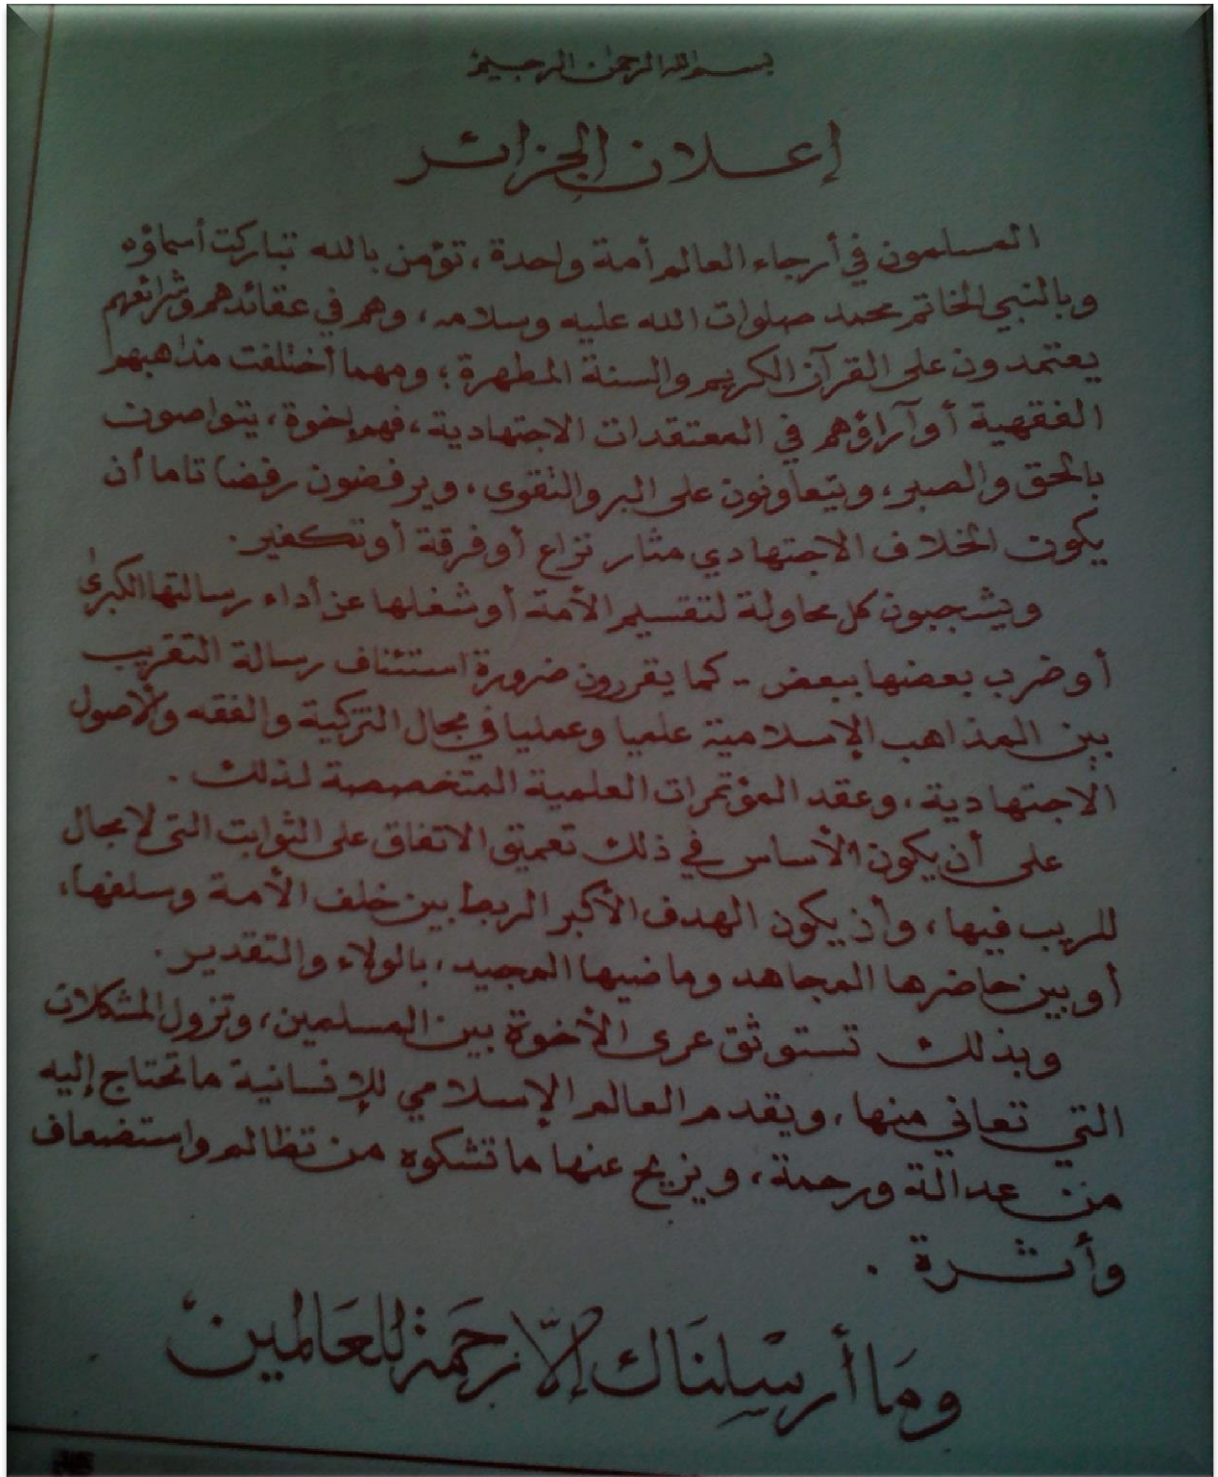 بسم الله الرحمن الرحيم
إعلان الجزائر
المسلمون في أرجاء العالم أمة واحدة، تؤمن بالله تباركت أسماؤه
وبالنبي الخاتم محمد صلوات الله عليه وسلامه، وهم في عقائدهم وشرائعهم
يعتمدون على القرآن الكريم والسنة المطهرة؛ ومهما اختلفت مذاهبهم
الفقهية أو آراؤهم في المعتقدات الاجتهادية، فهم إخوة، يتواصون
بالحق والصبر، ويتعاونون على البر والتقوى، ويرفضون رفضا تاما أن
يكون الخلاف الاجتهادي مثار نزاع أو فرقة أو تكفير.
ويشجبون كل محاولة لتقسيم الأمة أو شغلها عن أداء رسالتها الكبرى
أو ضرب بعضها ببعض - كما يقررون ضرورة استئناف رسالة التقريب
بين المذاهب الإسلامية علميا وعمليا في مجال التزكية والفقه والأصول
الاجتهادية، وعقد المؤتمرات العلمية المتخصصة لذلك.
على أن يكون الأساس في ذلك تعميق الاتفاق على الثوابت التي لا مجال
للريب فيها، وأن يكون الهدف الأكبر الربط بين خلف الأمة وسلفها،
أو بين حاضرها المجاهد وماضيها المجيد، بالولاء والتقدير.
وبذلك تستوثق عرى الأخوة بين المسلمين، وتزول المشكلات
التي تعاني منها، ويقدم العالم الإسلامي للإنسانية ما تحتاج إليه
من عدالة ورحمة، ويزيح عنها ما تشكوه من تظالم واستضعاف
وأثرة.
وَمَا أرْسلنَاك إلّا رَحمَة للعَالمين